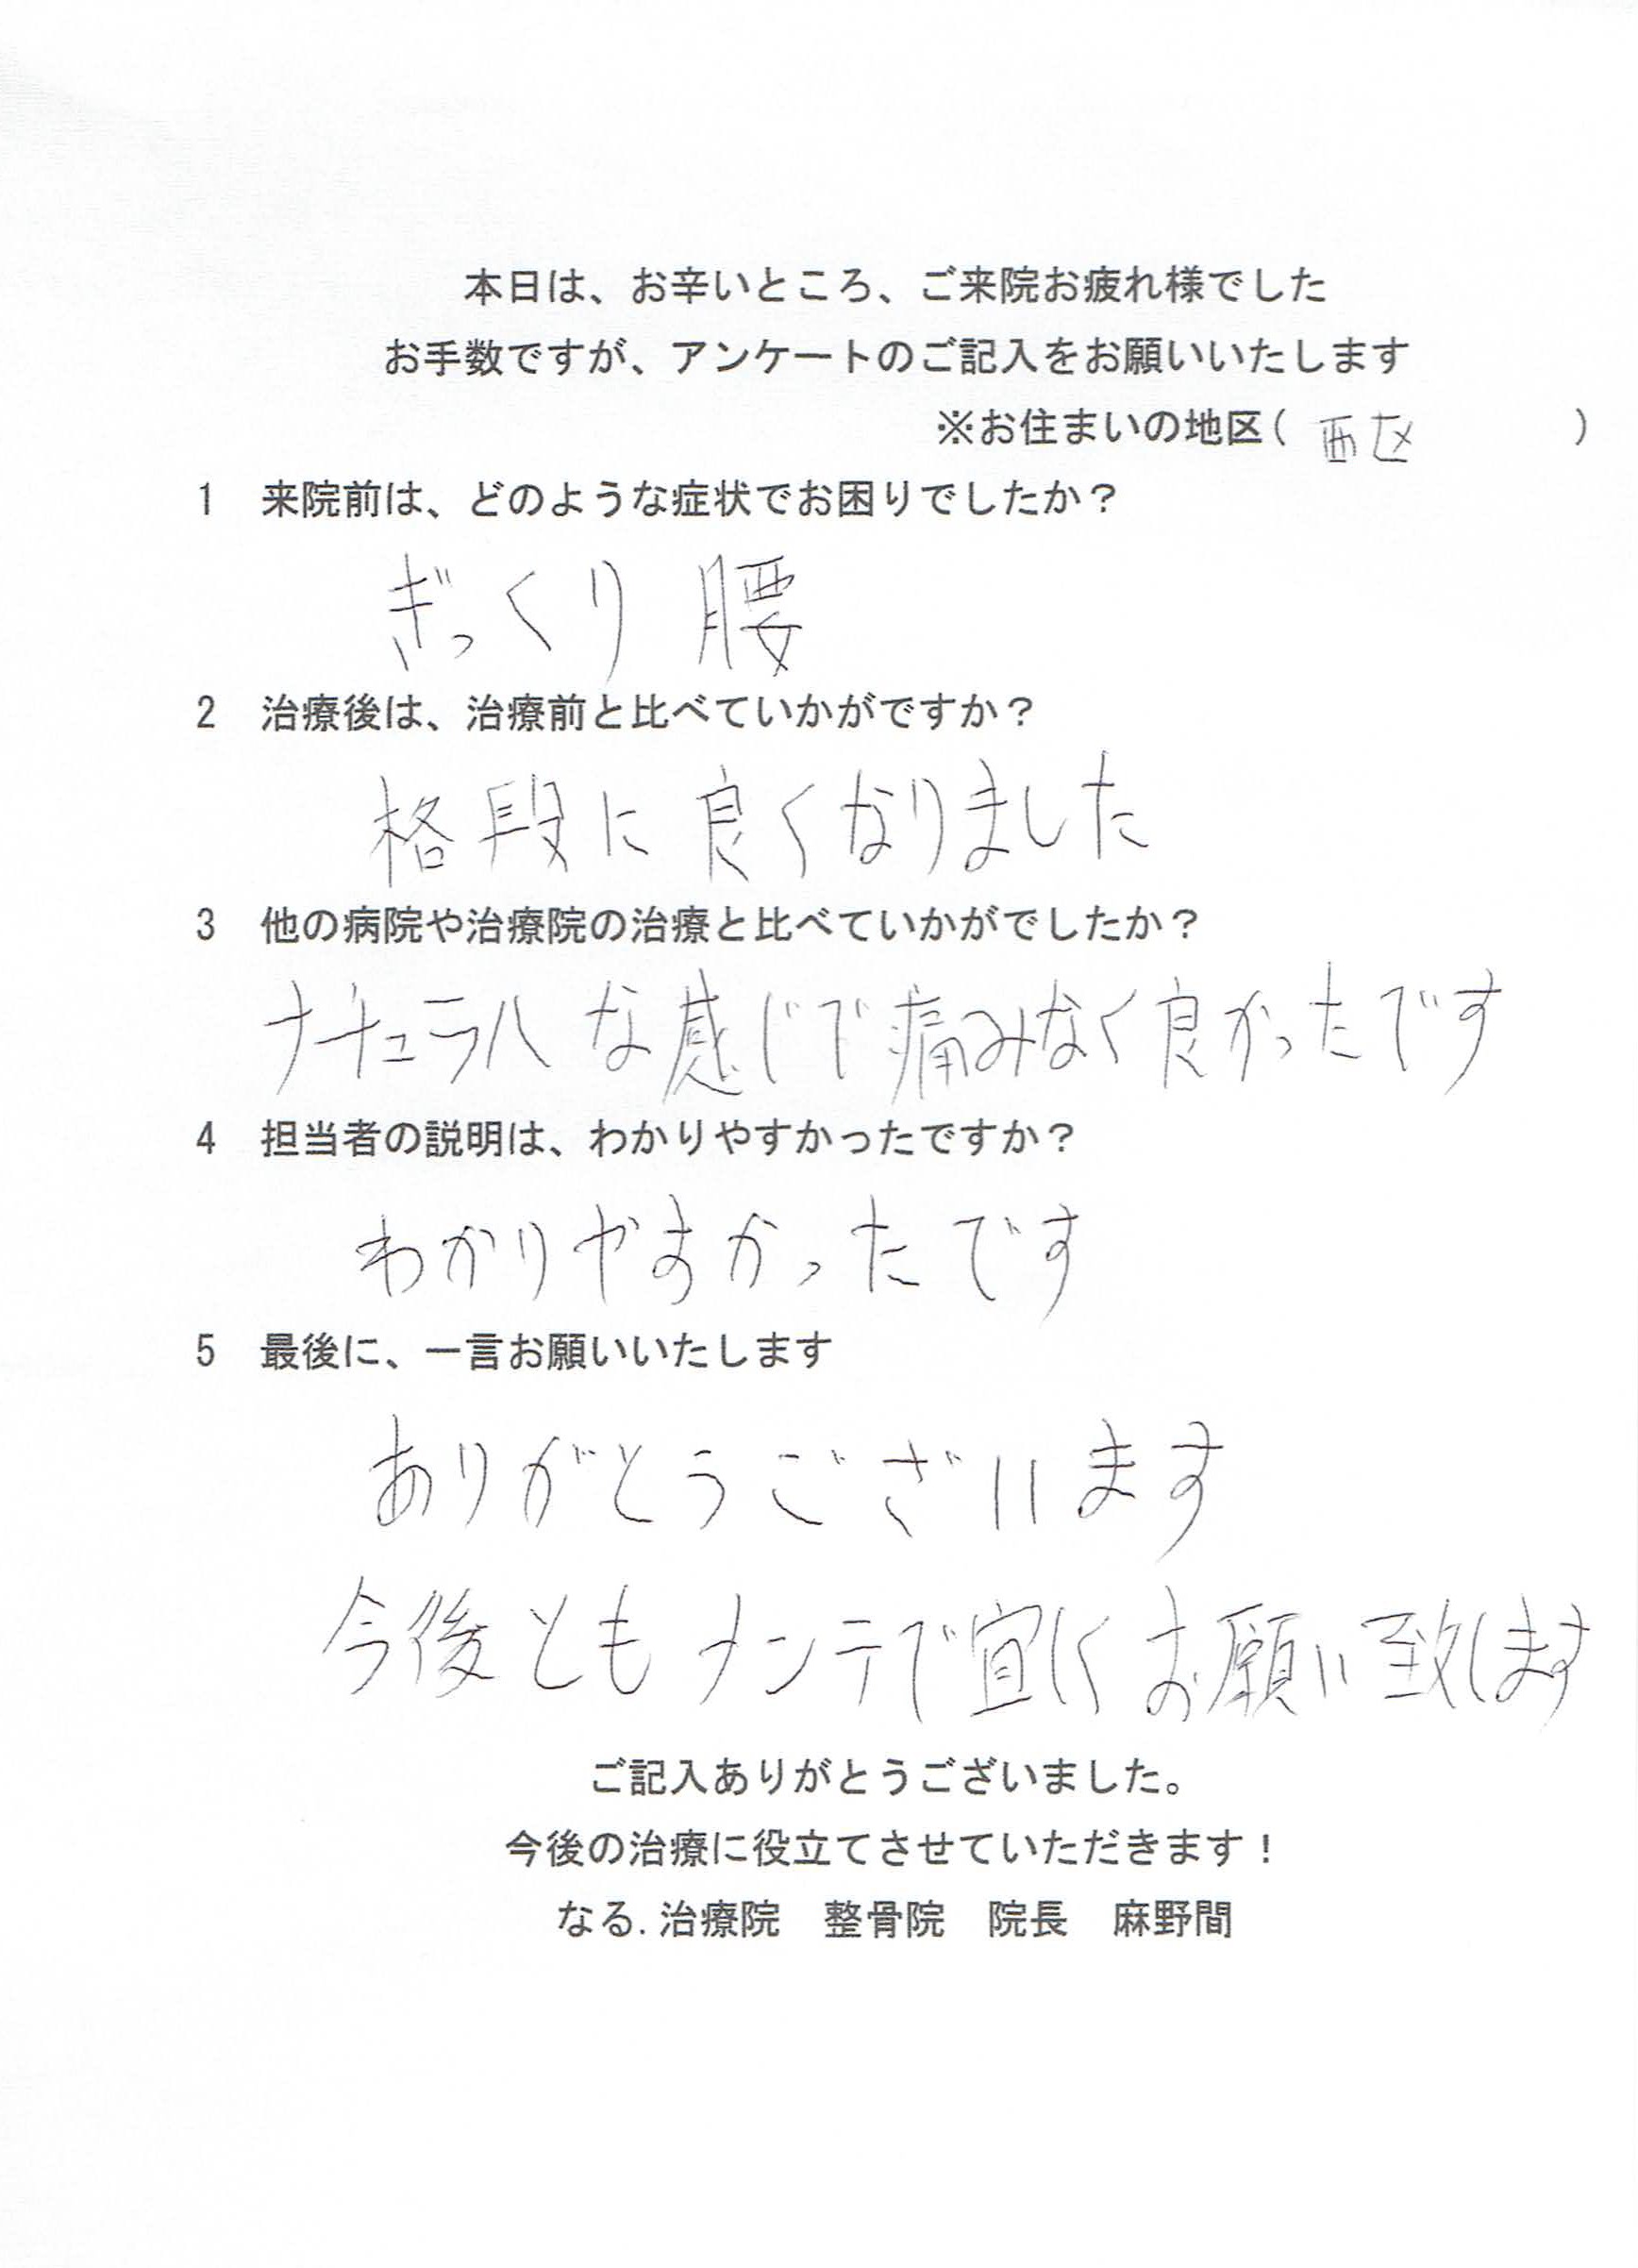 本日は、お辛いところ、ご来院お疲れ様でした
お手数ですが、アンケートのご記入をお願いいたします
※お住まいの地区( 西区 )
1 来院前は、どのような症状でお困りでしたか？
ぎっくり腰
2 治療後は、治療前と比べていかがですか？
格段に良くなりました
3 他の病院や治療院の治療と比べていかがでしたか？
ナチュラルな感じで痛みなく良かったです
4 担当者の説明は、わかりやすかったですか？
わかりやすかったです
5 最後に、一言お願いいたします
ありがとうございます
今後ともメンテで宜しくお願い致します
ご記入ありがとうございました。
今後の治療に役立てさせていただきます！
なる.治療院 整骨院 院長 麻野間